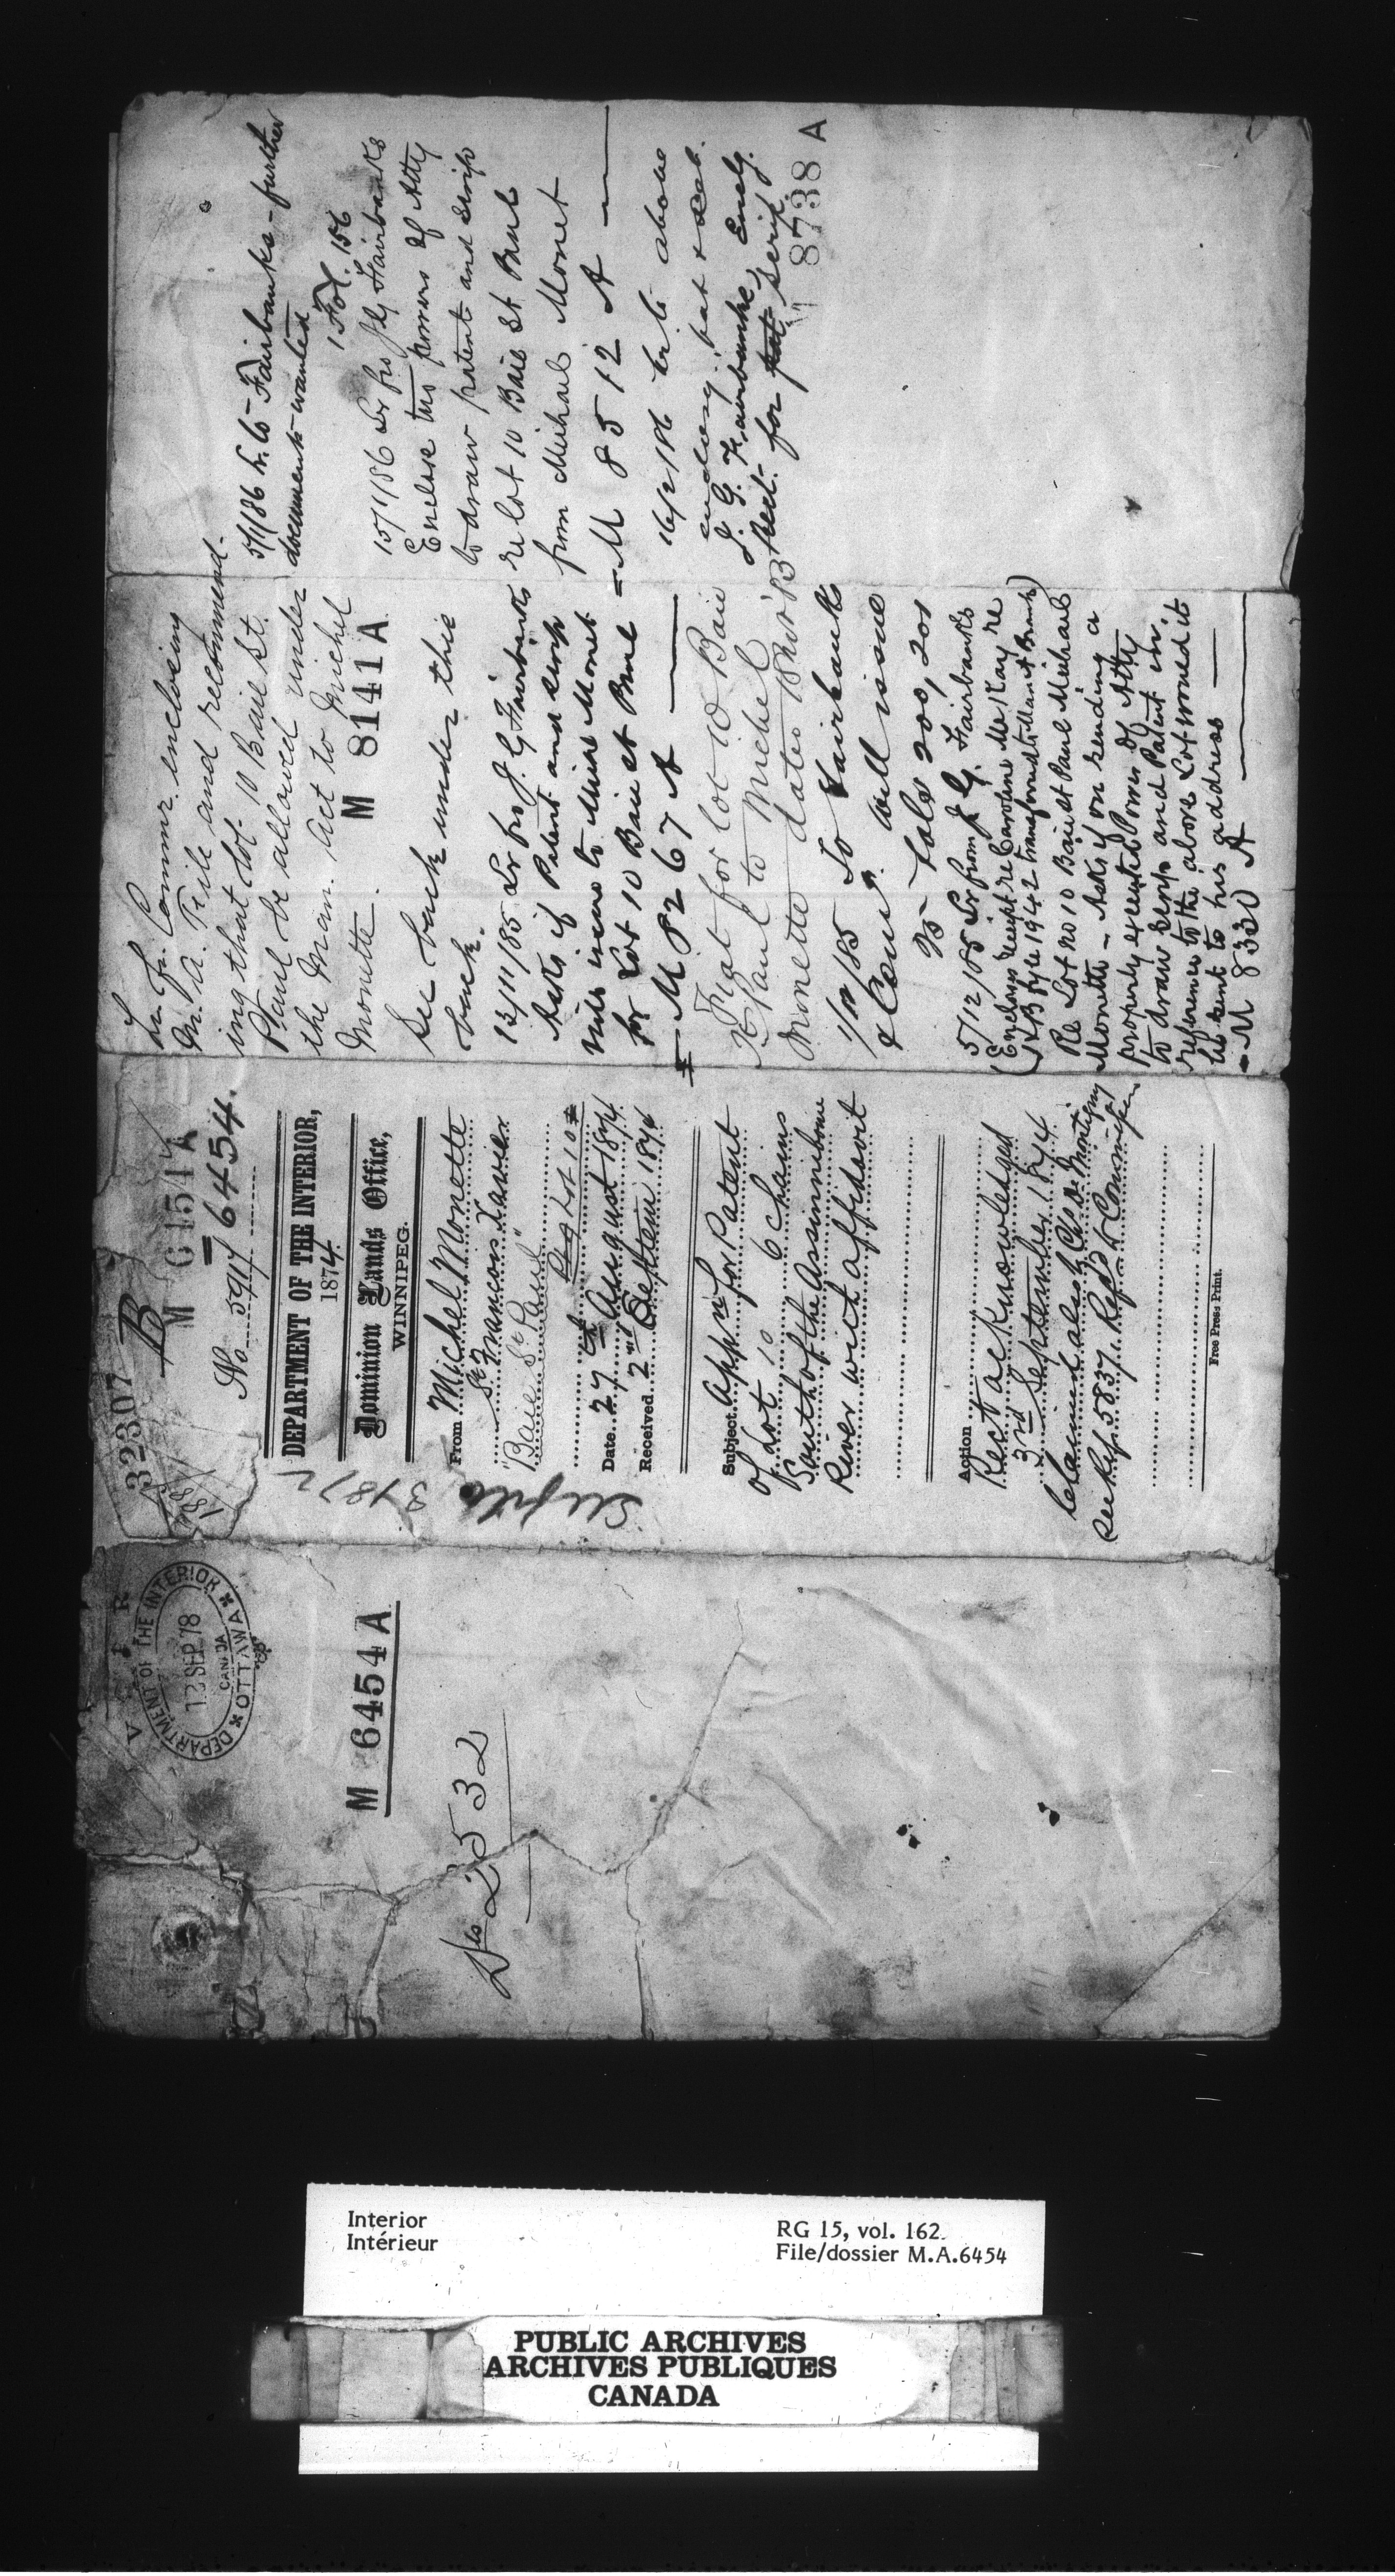 32307
1881
B
M 6454 A
No 5917 6454.
DEPARTMENT OF THE INTERIOR,
1874.
Dominion Lands Office,
WINNIPEG.
From Michel Monette
St Francois Xavier
"Baie St Paul"
Reg Lot 10
Date 27th August 1874
Received 2nd Septem 1874
Subject Appn for Patent
of Lot 10 6 Chains
South of the Assiniboine
River with affidavit
Action
Rect acknowledged
3rd September 1874
Claimed also by Ch De Montigny
See Ref. 5837. Refd to Commissr
Free Press Print.
See file
Lr. fr. Commr. enclosing
M. A. File and recommend-
ing that Lot 10 Baie St.
Paul be allowed under
the Man. Act to Michel
Monette.
M 8141 A
See back under this
back.
12/11/85 Lr fro J. G Fairbanks
Asks if Patent and scrip
will issue to Michl Monet
for Lot 10 Baie St Paul
M 8267 A
Fiat for lot 10 Baie
St Paul to Michel
Monette dated 18
To Fairbanks
will issue
Folo 200, 201
5/12/85 Lr from J. G. Fairbanks
(Encloses receipt re Caroline McKay re
transferred to Branch)
Re Lot No 10 Baie St Paul Michael
Monette - Asks if on sending a
properly executed Power of Atty
to draw scrip and Patent in
reference to the above Lot would it
be sent to his address
M 8330 A
5/1/86 L. to Fairbanks - further
documents wanted
1 Fol. 156
15/1/86 Lr fro J G Fairbanks
Enclose two powers of Atty
to draw patent and scrip
re Lot 10 Baie St Paul
from Michael Monet
M 8512 A
16/2/86 Lr to above
enclosing pat
J. G. Fairbanks Encly.
rect. for pat scrip.
M 8738 A
V R
DEPARTMENT OF THE INTERIOR
13 SEP 78
CANADA
OTTAWA
M 6454 A
2532
Interior
Intérieur
RG 15, vol. 162
File/dossier M.A.6454
PUBLIC ARCHIVES
ARCHIVES PUBLIQUES
CANADA